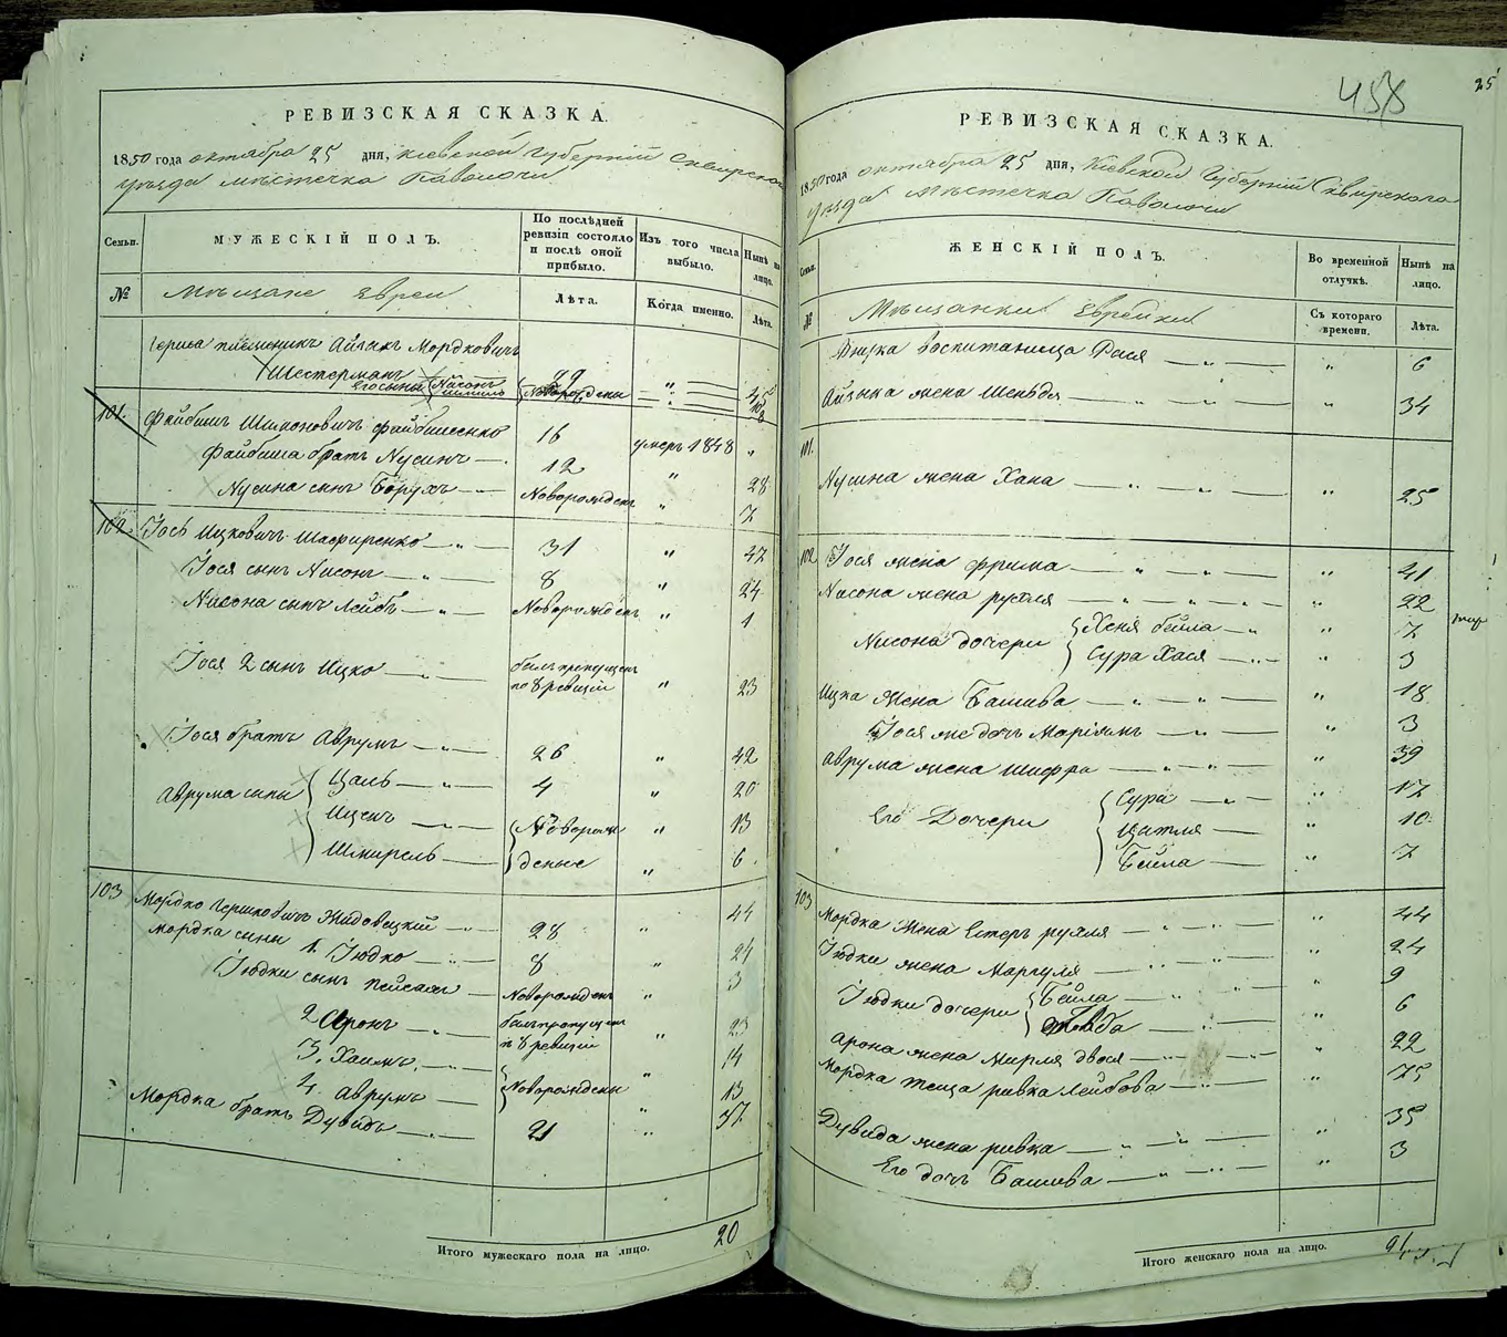 РЕВИЗСКАЯ СКАЗКА.
1850 года октября 25 дня, Кіевской Губерніи Сквирскаго
уезда мѣстечка Паволочи
Семьи. МУЖЕСКІЙ ПОЛЪ. По послѣдней ревизіи состояло и послѣ оной прибыло. Изъ того числа выбыло. Нынѣ на лицо.
№ Мѣщане Евреи Лѣта. Когда именно. Лѣта.
Герша племеникъ Айзикъ Мордковичъ
Шестерманъ 29 "
Его сыны Нисонъ
101. Файбишъ Шимоновичъ Файбишенко 16 умеръ 1848 "
Файбиша братъ Нусинъ 12 " 28
Нусина сынъ Борухъ Новорожденъ " 7
102. Іось Ицковичъ Шафиренко 31 " 47
Іося сынъ Нисонъ 8 " 24
Нисона сынъ Лейбъ Новорожденъ " 1
Іося 2 сынъ Ицко былъ пропущенъ
по 8 ревизіи " 23
Іося братъ Аврумъ 26 " 42
Аврума сыны Цаль 4 " 20
Ицекъ Новорож " 13
Шмирель деные " 6
103 Мордко Гершковичъ Жидовецкій 28 " 44
Мордка сыны 1. Іюдко 8 " 24
Іюдки сынъ Пейсахъ Новорожденъ " 3
2 Аронъ былъ пропущенъ
по 8 ревизіи " 23
3. Хаимъ " 14
4. Аврумъ Новорождены " 13
Мордка братъ Дувидъ 21 " 37
Итого мужескаго пола на лицо. 20
458
25
РЕВИЗСКАЯ СКАЗКА.
1850 года октября 25 дня, Кіевской Губерніи Сквирскаго
уезда Мѣстечка Паволочи
Семьи. ЖЕНСКІЙ ПОЛЪ. Во временной отлучкѣ. Нынѣ на лицо.
№ Мѣщанки Еврейки Съ котораго времени. Лѣта.
воспитаница Рася " 6
Айзика жена Шейндля " 34
101.
Нусина жена Хана " 25
102 Іося жена Фрима " 41
Нисона жена Рухля " 22
Нисона дочери Хеня Бейла " 7
Сура Хася " 3
Ицка жена Башива " 18
Іося же дочь Маріямъ " 3
Аврума жена Шифра " 39
Его Дочери Сура " 17
Цитля " 10
Бейла " 7
103 Мордка Жена Естеръ Рухля " 44
Іюдки жена Маргуля " 24
Іюдки дочери Бейла " 9
" 6
Арона жена Мирля Двося " 22
Мордка теща Ривка Лейбова " 75
Дувида жена Ривка " 35
Его дочь Башива " 3
Итого женскаго пола на лицо.